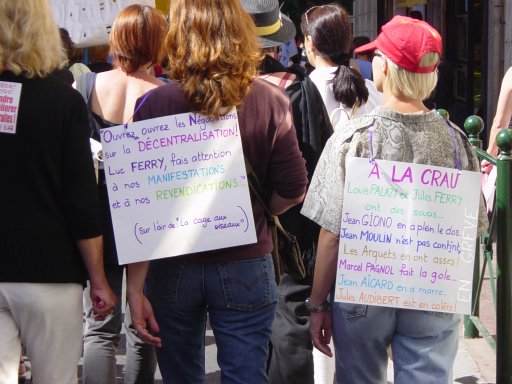 "Ouvrez, ouvrez les Négociations
sur la DÉCENTRALISATION!
Luc FERRY, fais attention
à nos MANIFESTATIONS
et à nos REVENDICATIONS..."
(Sur l'air de "La cage aux
oiseaux")
À LA CRAU
Louis PALAZY et Jules FERRY
ont des soucis...
Jean GIONO en a plein le dos.
Jean MOULIN n'est pas content,
Les Arquets en ont assez!
Marcel PAGNOL fait la gole...
Jean AICARD en a marre...
Jules AUDIBERT est en colère!
EN GRÈVE